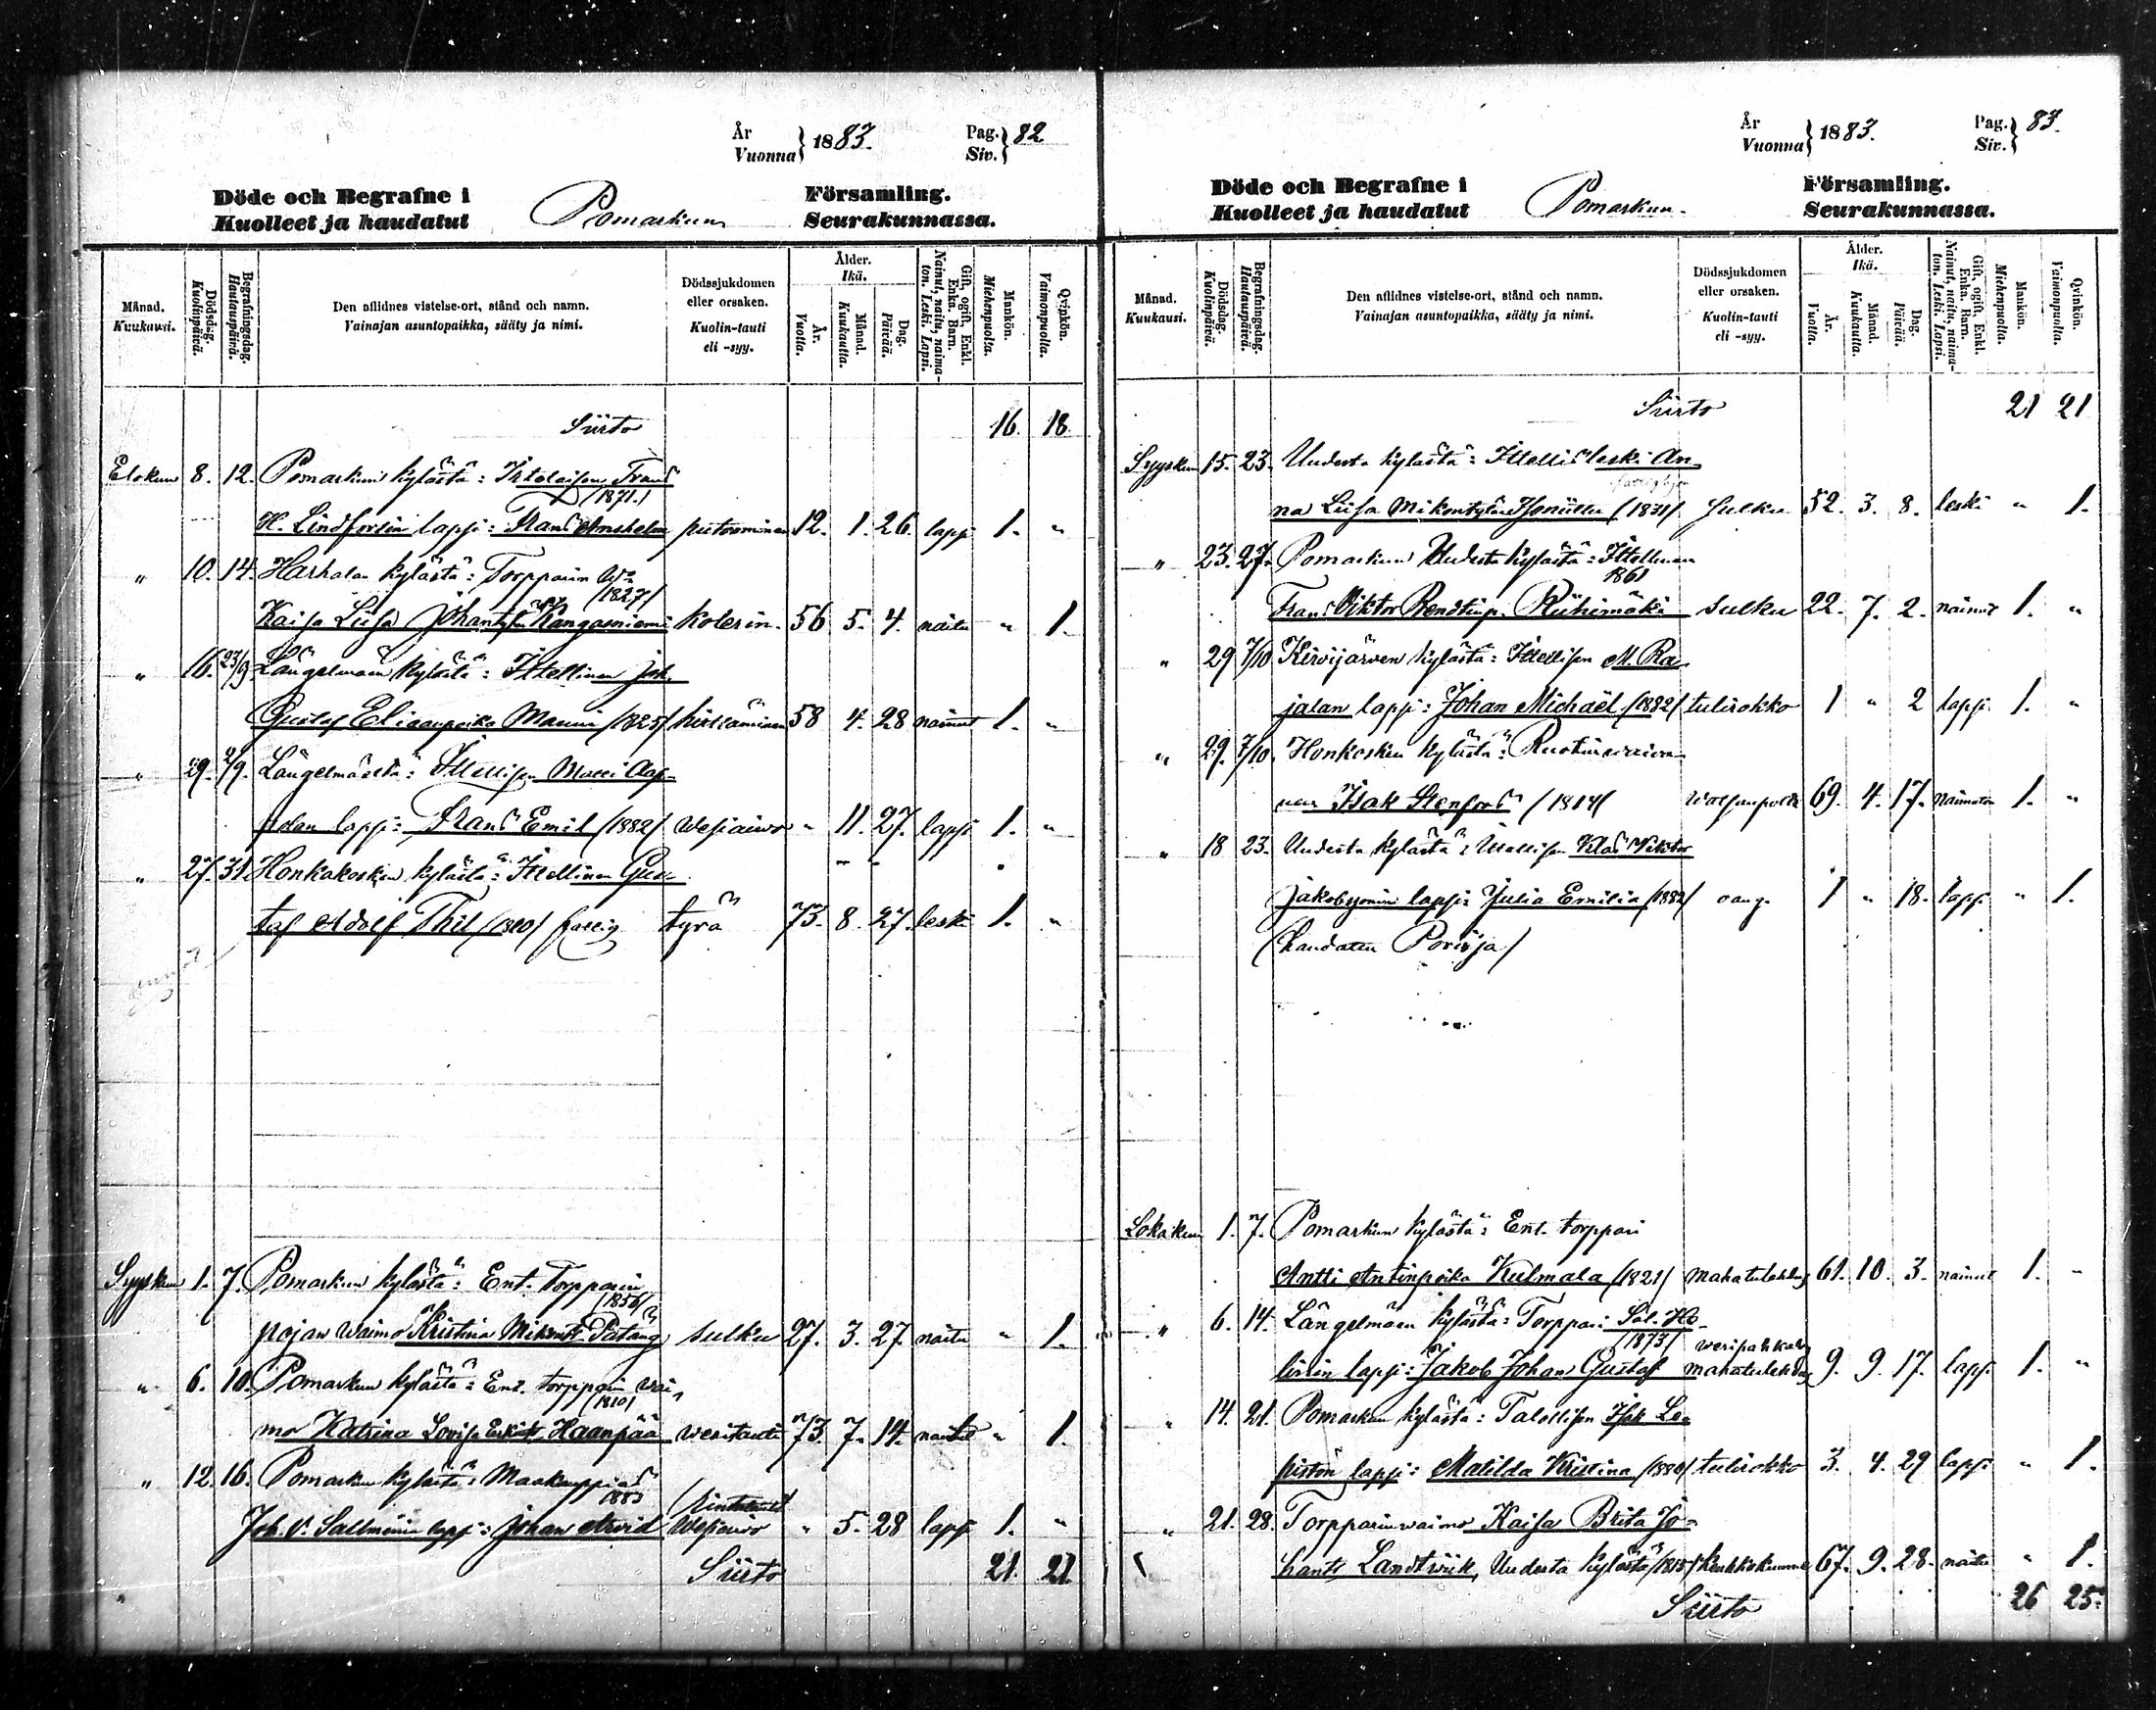 År
Vuonna } 1883.
Pag.
Siv. } 82
Döde och Begrafne i
Kuolleet ja haudatut
Pomarkun
Församling.
Seurakunnassa.
Månad.
Kuukausi.
Dödsdag.
Kuolinpäivä.
Begrafningsdag.
Hautauspäivä.
Den aflidnes vistelse-ort, stånd och namn.
Vainajan asuntopaikka, sääty ja nimi.
Dödssjukdomen
eller orsaken.
Kuolin-tauti
eli -syy.
Ålder.
Ikä.
År.
Vuotta.
Månad.
Kuukautta.
Dag.
Päivää.
Gift, ogift, Enkl.
Enka. Barn.
Nainut, naitu, naima-
ton. Leski. Lapsi.
Mankön.
Miehenpuolta.
Qvinkön.
Vaimonpuolta.
Siirto 16. 18.
Elokuu 8. 12. Pomarkun kylästä: Frans
/1871./
H. Lindforsin lapsi: Frans putoominen 12. 1. 26. lapsi 1. "
" 10. 14. Harhalan kylästä: Torpparin W:o
/1827/
Kaisa Liisa Johant. Kangasniemi kolerin. 56 5. 4. naitu " 1.
" 16. 23/9 Längelmäen kylästä: Itsellinen Joh.
Gustaf Eliaanpoika Manni /1825/ 58 4. 28 nainut 1. "
" 29. 2/9. Längelmäeltä: Itsellisen Matti
lapsi: Frans Emil /1882/ " 11. 27. lapsi 1. "
" 27. 31 Honkakosken kylästä: Itsellinen Gus-
taf Adolf Thil /1810/ fattig tyrä 73. 8. 27. leski 1. "
Syyskuu 1. 7. Pomarkun kylästä: Ent. Torpparin
/1856/
pojan waimo Kristina Mikont. sulku 27. 3. 27. naitu " 1.
" 6. 10. Pomarkun kylästä: Ent. torpparin wai-
/1810/
mo Katrina Lovisa Erkint. Haanpää weritauti 73. 7. 14. naitu " 1.
" 12. 16. Pomarkun kylästä: Maakauppias
1883
Joh. V. Sallménin lapsi: Johan Arvid " 5. 28 lapsi 1. "
Siirto 21. 21.
År
Vuonna } 1883.
Pag.
Siv. } 83.
Döde och Begrafne i
Kuolleet ja haudatut
Pomarkun.
Församling.
Seurakunnassa.
Månad.
Kuukausi.
Dödsdag.
Kuolinpäivä.
Begrafningsdag.
Hautauspäivä.
Den aflidnes vistelse-ort, stånd och namn.
Vainajan asuntopaikka, sääty ja nimi.
Dödssjukdomen
eller orsaken.
Kuolin-tauti
eli -syy.
Ålder.
Ikä.
År.
Vuotta.
Månad.
Kuukautta.
Dag.
Päivää.
Gift, ogift, Enkl.
Enka. Barn.
Nainut, naitu, naima-
ton. Leski. Lapsi.
Mankön.
Miehenpuolta.
Qvinkön.
Vaimonpuolta.
Siirto 21 21
Syyskuu 15. 23. Uudesta kylästä: Itsellis leski An-
na Liisa Mikontytär /1831/ Sulku 52. 3. 8. leski " 1.
" 23. 27. Pomarkun Uudesta kylästä: Itsellinen
1861
Frans Viktor Riihimäki sulku 22. 7. 2. nainut 1. "
" 29 7/10 Kivijärven kylästä: Itsellisen M. Ra-
jalan lapsi: Johan Michaël /1882/ tulirokko 1 " 2 lapsi 1. "
" 29. 7/10. Honkosken kylästä:
Isak Stenfors /1814/ 69. 4. 17. naimaton 1. "
" 18 23. Uudesta kylästä: Itsellisen Klas Viktor
Jakobssonin lapsi: Julia Emilia /1882/ 1 " 18. lapsi " 1.
/haudattu Porissa/
Lokakuu 1. 7. Pomarkun kylästä: Ent. torppari
Antti Antinpoika Kulmala /1821/ mahatulehdus 61. 10. 3. nainut 1. "
" 6. 14. Längelmäen kylästä: Torppari Sal. He-
/1873/
linin lapsi: Jakob Johan Gustaf mahatulehdus 9. 9. 17. lapsi 1. "
" 14. 21. Pomarkun kylästä: Talollisen Isak Le-
pistön lapsi: Matilda Kristina /1880/ tulirokko 3. 4. 29 lapsi " 1.
" 21. 28. Torpparinwaimo Kaisa Brita Jo-
hant. Landtwik, Uudesta kylästä /1815/ 67. 9. 28. naitu " 1.
Siirto 26 25.